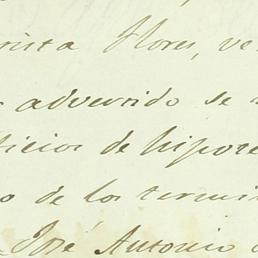 Flores, ve
advertido se
ficios de hipote
o de los termi
José Antonio